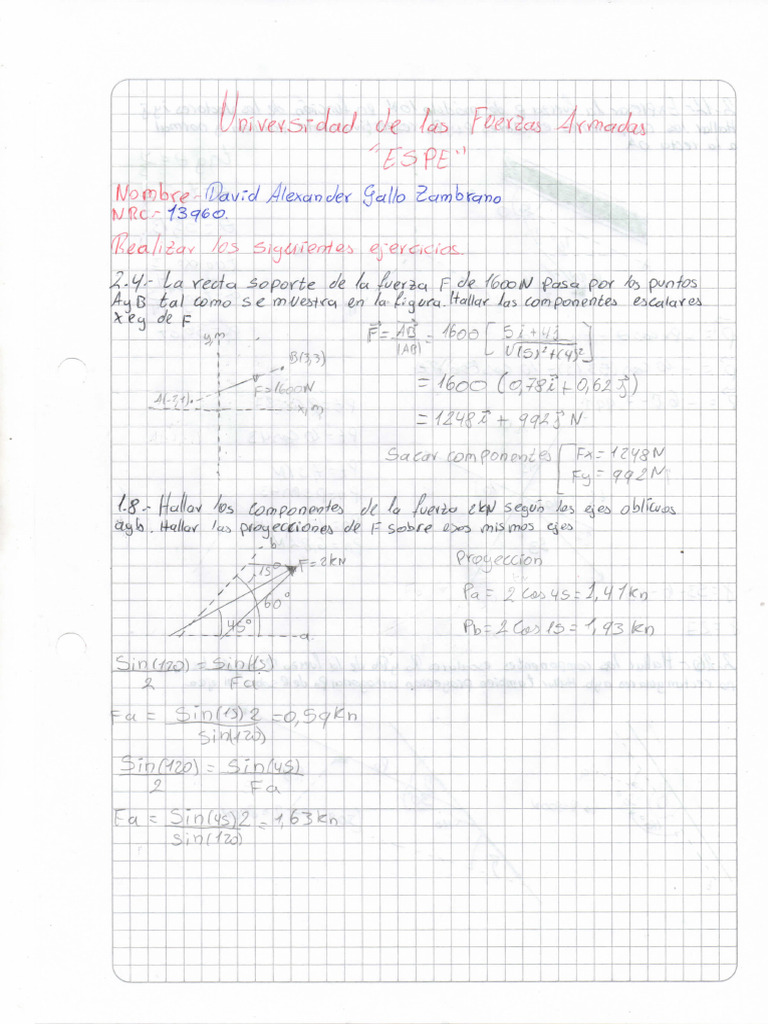 Universidad de las Fuerzas Armadas
"ESPE"
Nombre.- David Alexander Gallo Zambrano
NRC.- 13960.
Realizar los siguientes ejercicios.
2.4.- La recta soporte de la fuerza F de 1600N pasa por los puntos
A y B tal como se muestra en la figura. Hallar las componentes escalares
x e y de F
y,m
B(3,3)
F=1600N
A(-2,-1)
x,m
F⃗ = AB⃗/|AB| = 1600 [5i+4j/√(5)²+(4)²]
= 1600 (0,78i⃗ + 0,62j⃗)
= 1248i⃗ + 992j⃗ N
Sacar componentes [Fx = 1248N
Fy = 992N
1.8.- Hallar los componentes de la fuerza 2kN según los ejes oblicuos
a y b. Hallar las proyecciones de F sobre esos mismos ejes
b
15°
F=2kN
60°
45°
a
Proyeccion
Pa = 2 Cos 45 = 1,41 kn
Pb = 2 Cos 15 = 1,93 kn
Sin(120)/2 = Sin(15)/Fa
Fa = Sin(15)2/Sin(120) = 0,59kn
Sin(120)/2 = Sin(45)/Fa
Fa = Sin(45)2/Sin(120) = 1,63 kn